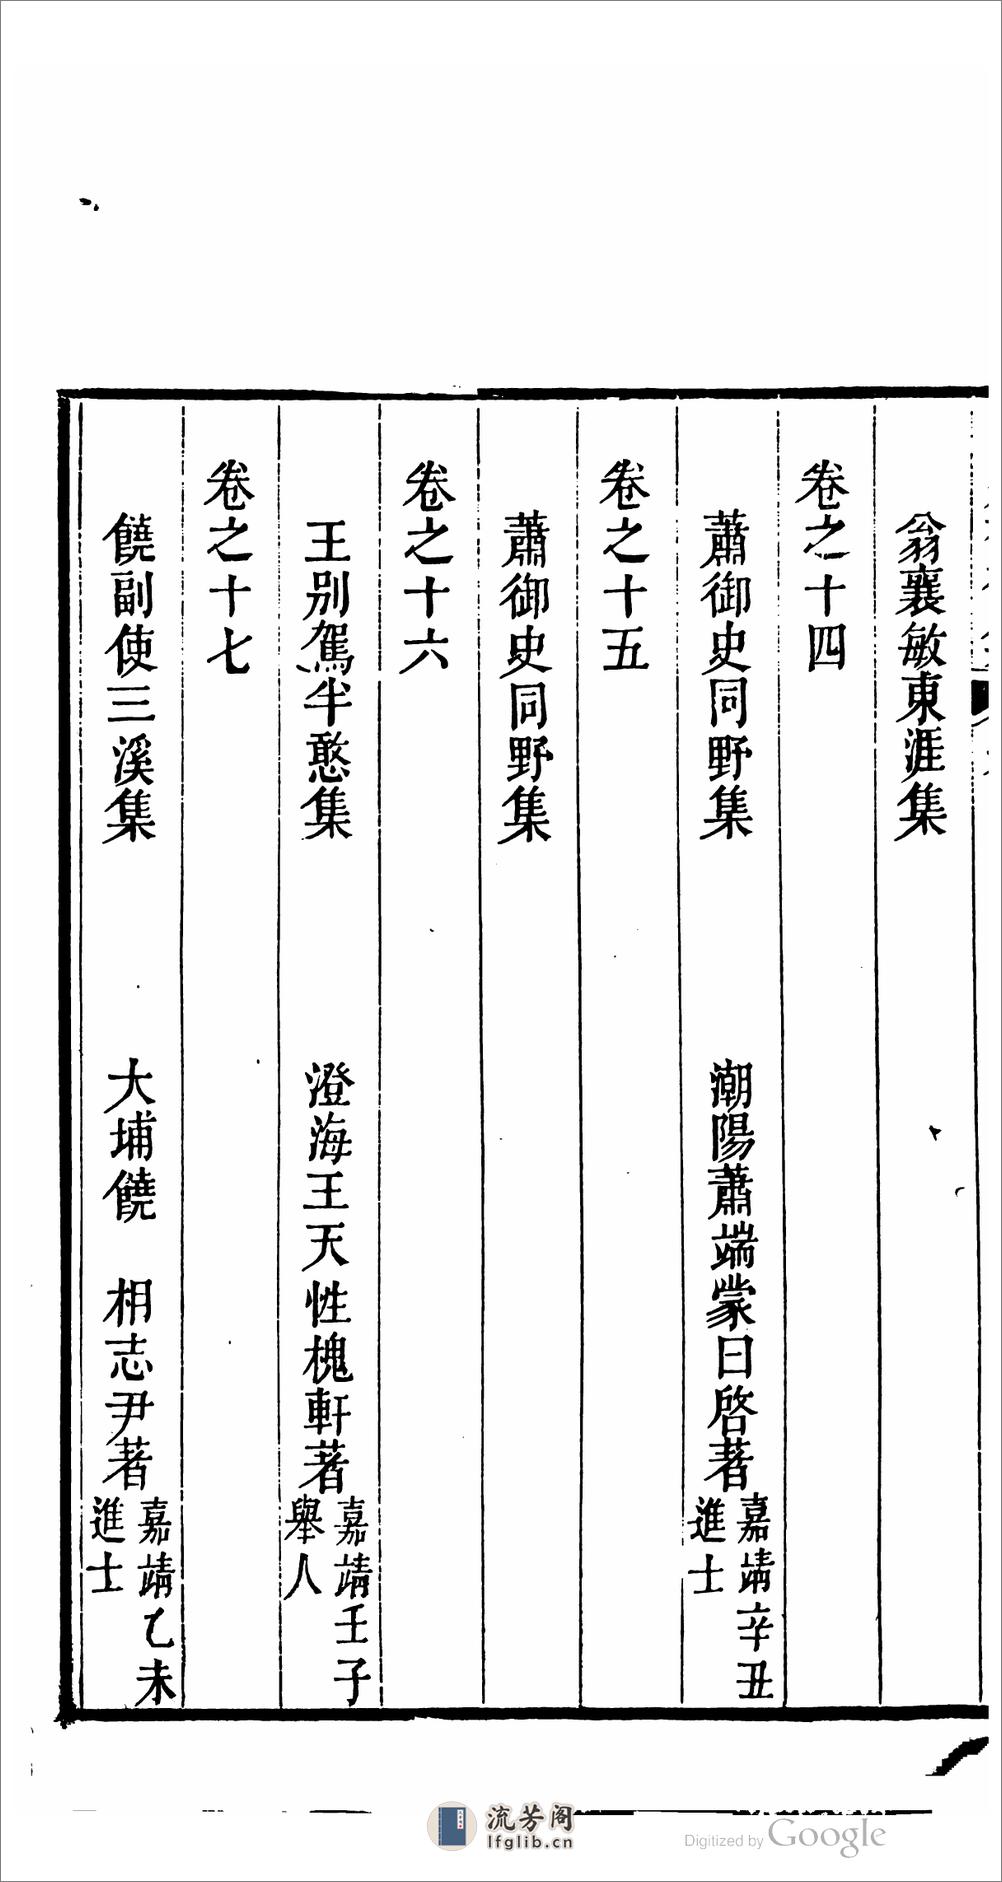 翁襄敏東涯集
卷之十四
蕭御史同野集 潮陽蕭端蒙曰啓著 嘉靖辛丑進士
卷之十五
蕭御史同野集
卷之十六
王別駕半憨集 澄海王天性槐軒著 嘉靖壬子舉人
卷之十七
饒副使三溪集 大埔饒 相志尹著 嘉靖乙未進士
流芳阁
lfglib.cn
Digitized by Google